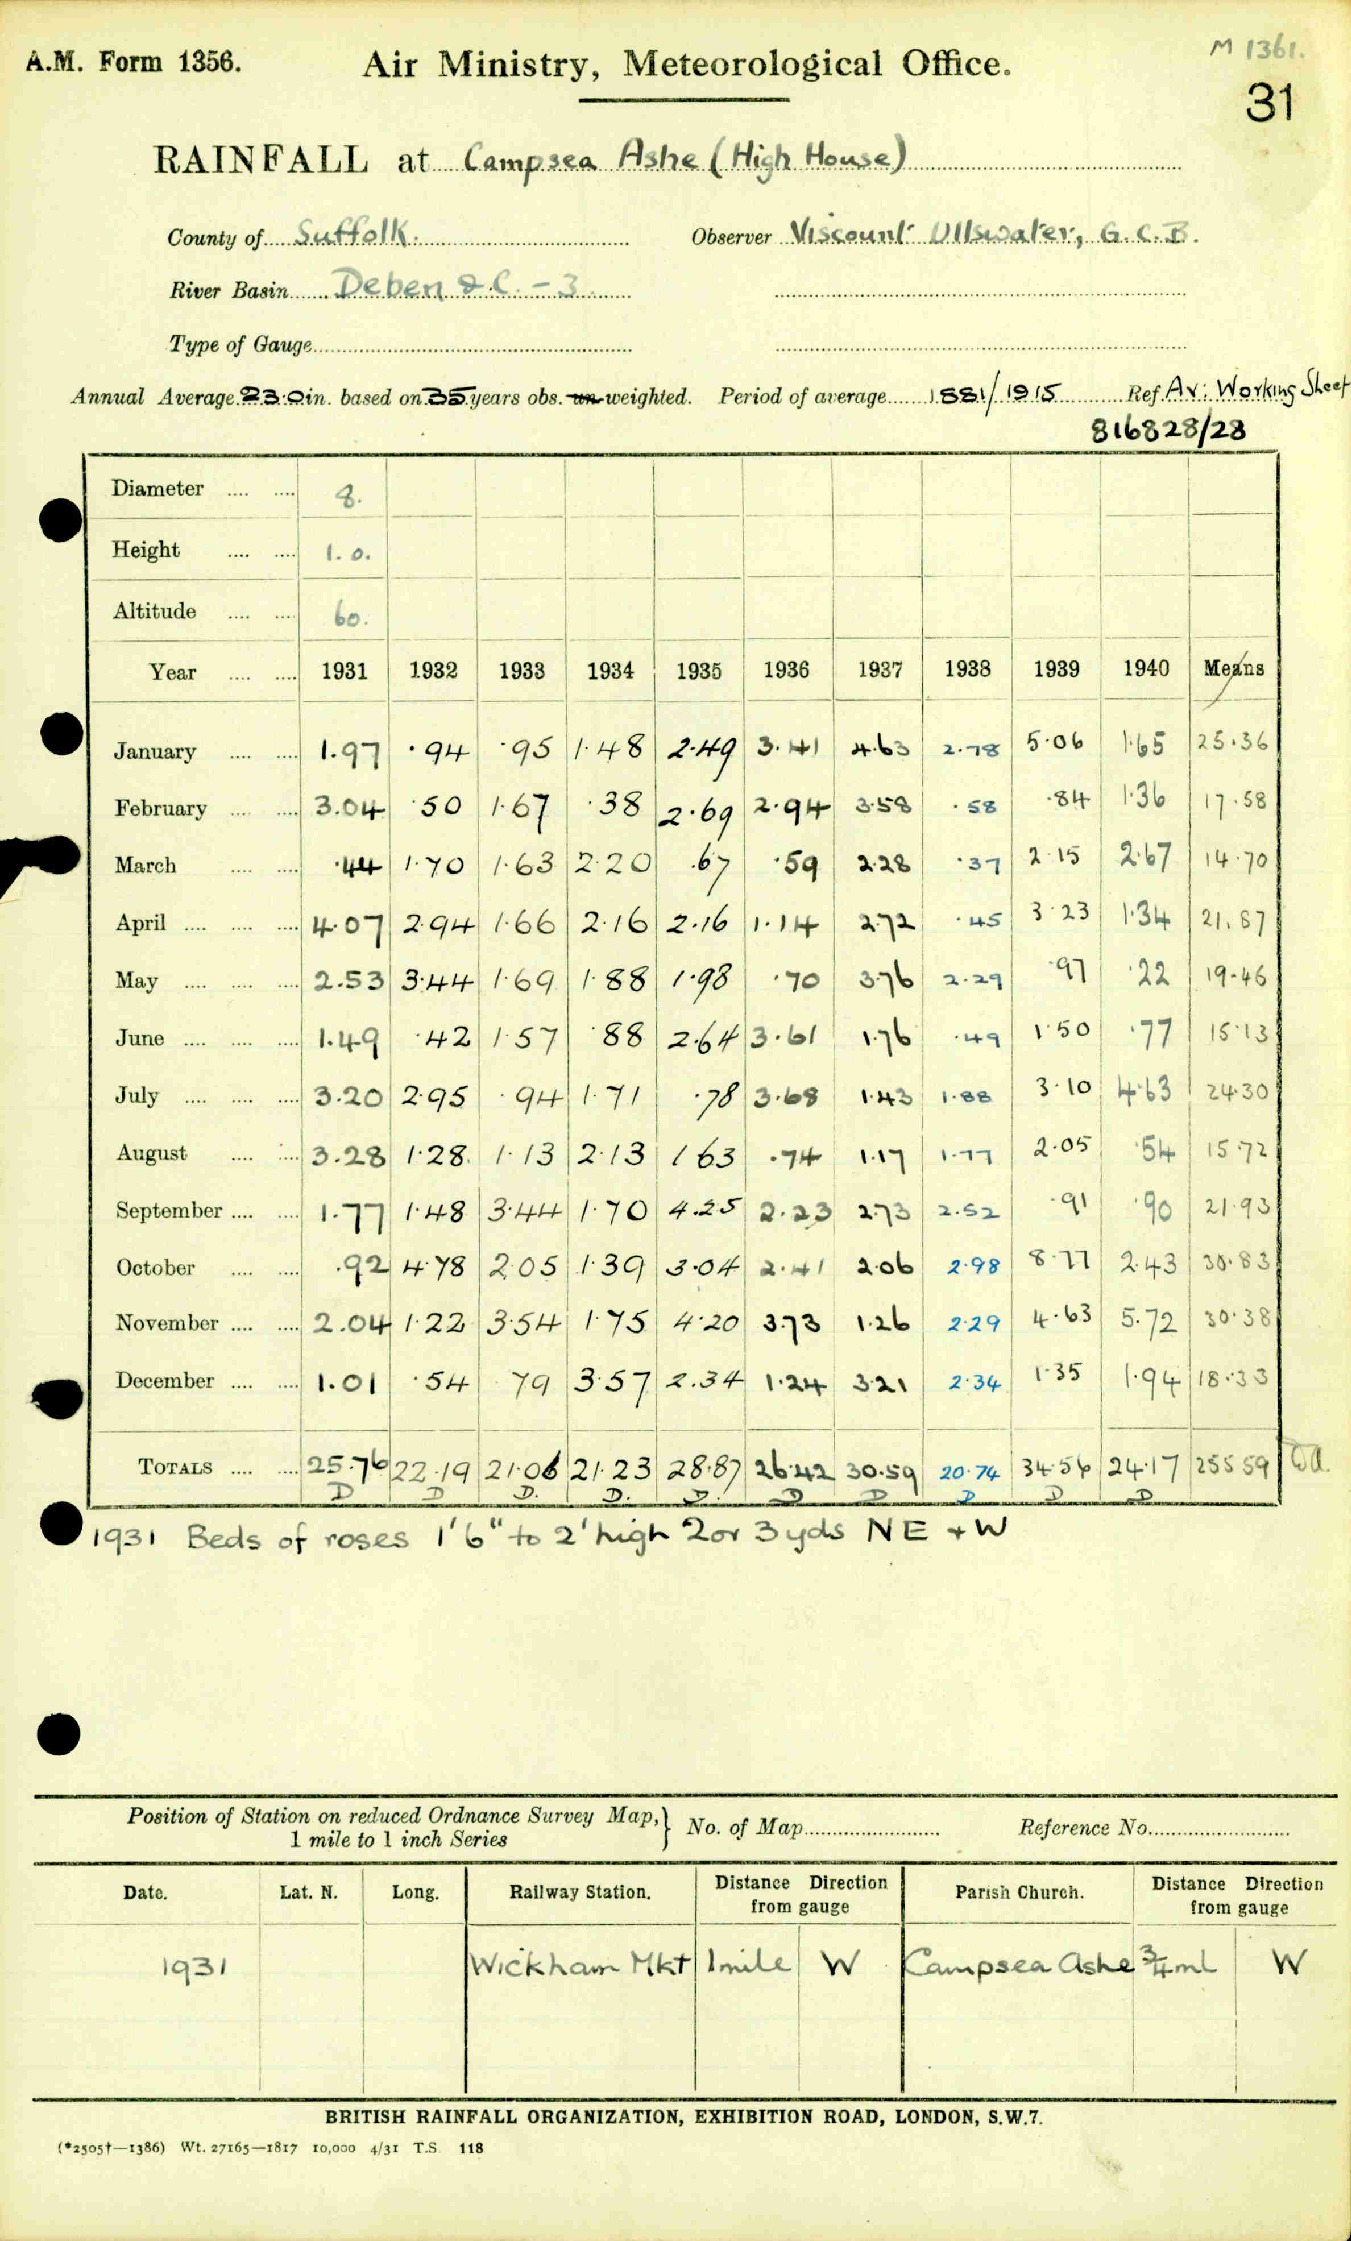 M 1361.
A.M. Form 1356. Air Ministry, Meteorological Office.
31
RAINFALL at Campsea Ashe (High House)
County of Suffolk. Observer Viscount Ullswater, G.C.B.
River Basin Deben & C. - 3
Type of Gauge
Annual Average 23.0 in. based on 35 years obs. un-weighted. Period of average 1881/1915 Ref. Av: Working Sheet
816828/28
Diameter .... .... 8.
Height .... .... 1.0.
Altitude .... .... 60.
Year .... .... 1931 1932 1933 1934 1935 1936 1937 1938 1939 1940 Means
January .... .... 1.97 .94 .95 1.48 2.49 3.41 4.63 2.78 5.06 1.65 25.36
February .... .... 3.04 .50 1.67 .38 2.69 2.94 3.58 .58 .84 1.36 17.58
March .... .... .44 1.70 1.63 2.20 .67 .59 2.28 .37 2.15 2.67 14.70
April .... .... .... 4.07 2.94 1.66 2.16 2.16 1.14 2.72 .45 3.23 1.34 21.87
May .... .... .... 2.53 3.44 1.69 1.88 1.98 .70 3.76 2.29 .97 .22 19.46
June .... .... .... 1.49 .42 1.57 .88 2.64 3.61 1.76 .49 1.50 .77 15.13
July .... .... .... 3.20 2.95 .94 1.71 .78 3.68 1.43 1.88 3.10 4.63 24.30
August .... .... 3.28 1.28 1.13 2.13 1.63 .74 1.17 1.77 2.05 .54 15.72
September .... .... 1.77 1.48 3.44 1.70 4.25 2.23 2.73 2.52 .91 .90 21.93
October .... .... .92 4.78 2.05 1.39 3.04 2.41 2.06 2.98 8.77 2.43 30.83
November .... .... 2.04 1.22 3.54 1.75 4.20 3.73 1.26 2.29 4.63 5.72 30.38
December .... .... 1.01 .54 .79 3.57 2.34 1.24 3.21 2.34 1.35 1.94 18.33
TOTALS .... .... 25.76 22.19 21.06 21.23 28.87 26.42 30.59 20.74 34.56 24.17 255.59
D D D. D. D. D D D D D
1931 Beds of roses 1'6" to 2' high 2 or 3 yds NE + W
Position of Station on reduced Ordnance Survey Map,} No. of Map Reference No.
1 mile to 1 inch Series
Date. Lat. N. Long. Railway Station. Distance from gauge Direction Parish Church. Distance from gauge Direction
1931 Wickham Mkt 1 mile W Campsea Ashe 3/4 ml W
BRITISH RAINFALL ORGANIZATION, EXHIBITION ROAD, LONDON, S.W.7.
(*2505†—1386) Wt. 27165—1817 10,000 4/31 T.S. 118